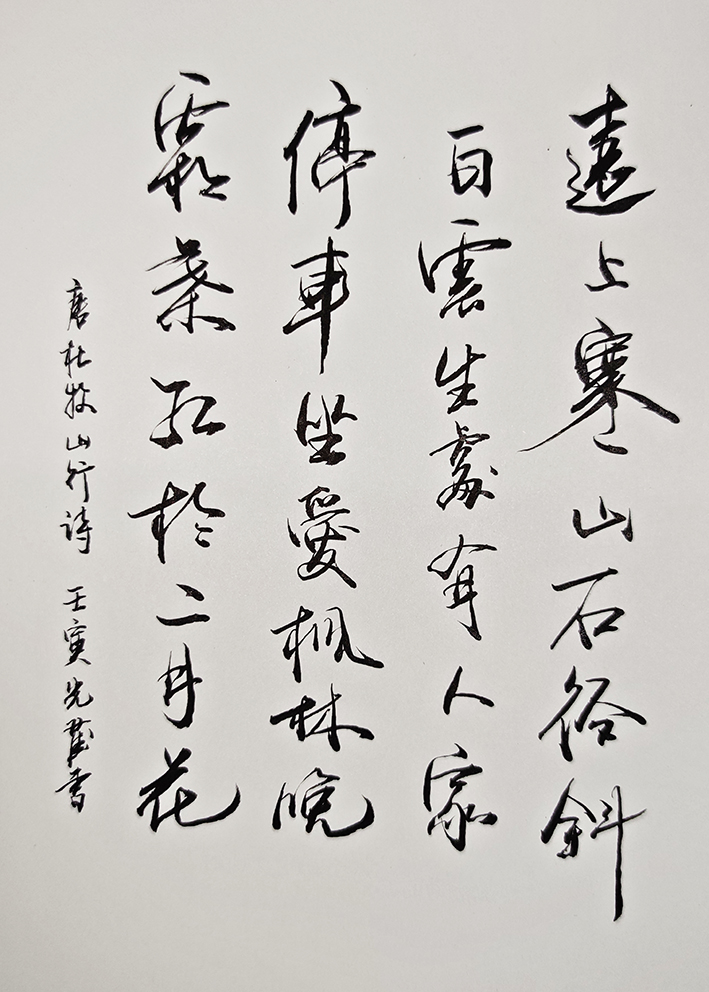 遠上寒山石徑斜
白雲生處有人家
停車坐愛楓林晚
霜葉紅於二月花
唐杜牧山行詩 壬寅先書